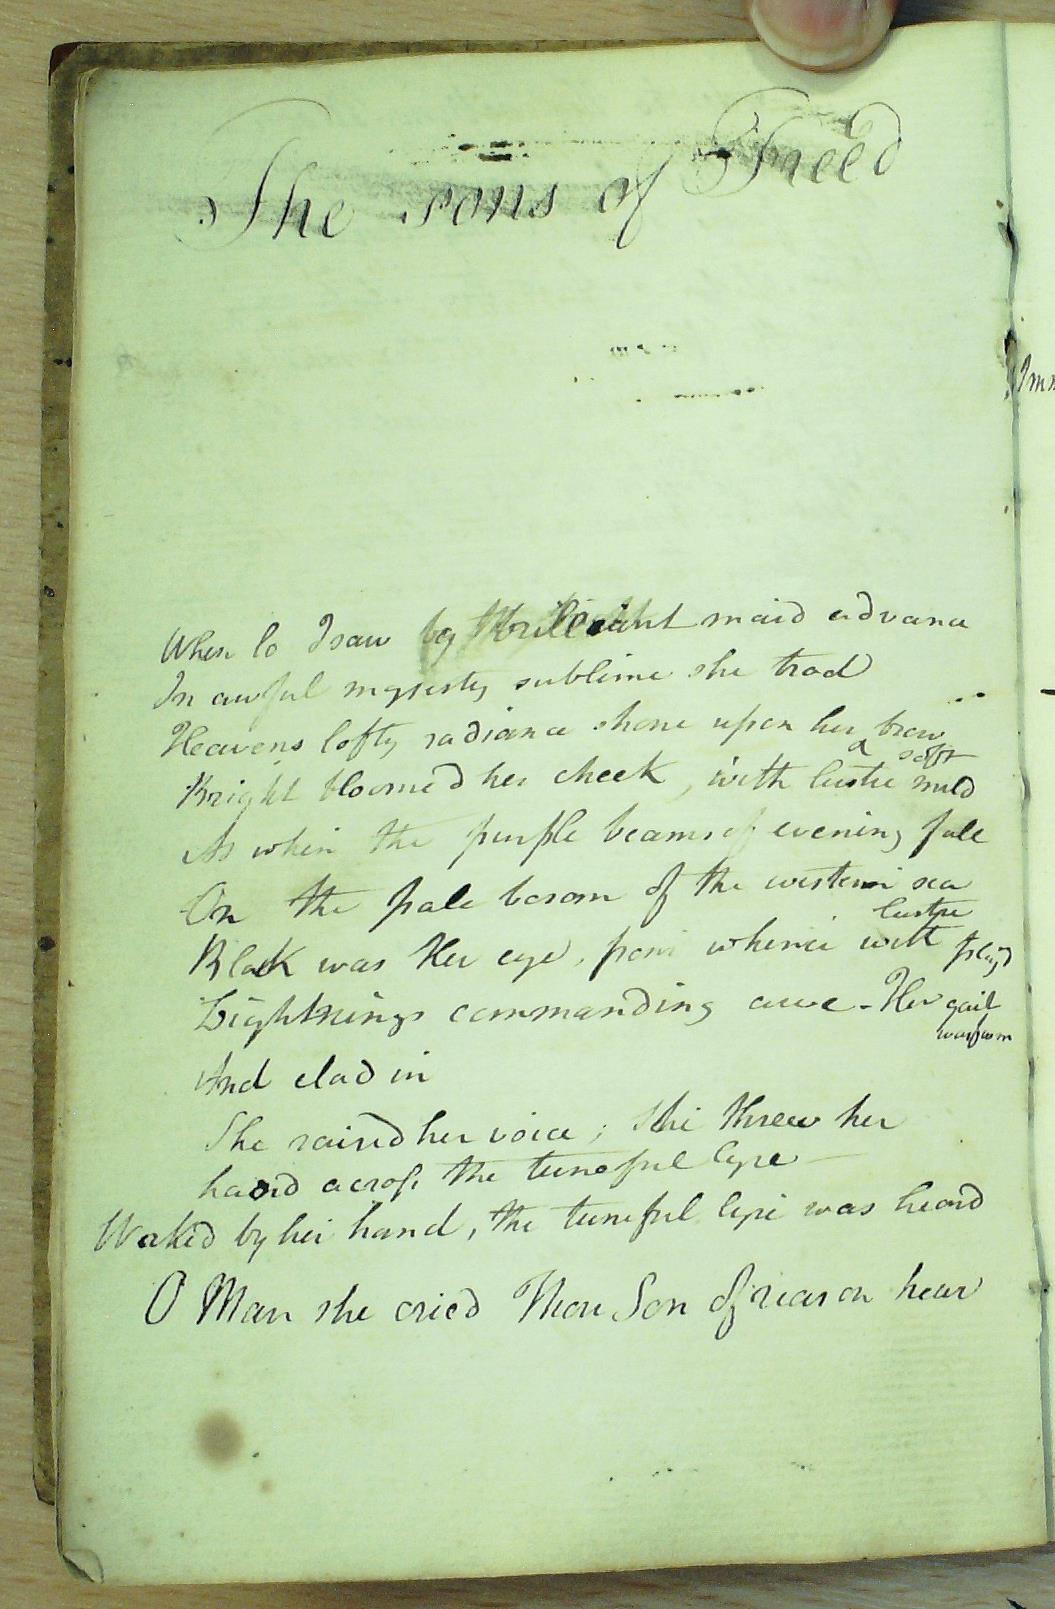 The sons of Freed
When lo I saw by brilliant maid advance
In awful mgjesty sublime she trod
Heavens lofty radiance shone upon her brow
soft
Bright bloomed her cheek, with lustre mild
As when the purple beams of evening fale
On the pale bosom of the western sea
lustre
Black was Her eye, from whence with playd
Lightnings commanding awe - Her gait
was
And clad in
She raised her voice; She threw her
hand across the tuneful lyre
Waked by her hand, the tuneful lyre was heard
O Man she cried Thou Son of reason hear
Imm